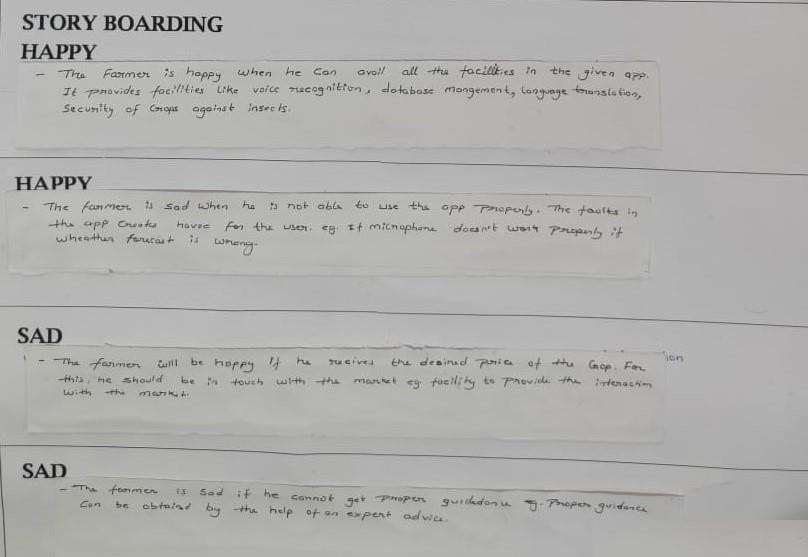 STORY BOARDING
HAPPY
- The Farmer is happy when he can avail all the facilities in the given app.
It provides facilities like voice recognition, database mangement, language translation,
Security of Crops against insects.
HAPPY
- The farmer is sad when he is not able to use the app properly. The faults in
the app creates havoc for the user. eg. If microphone doesn't work properly if
wheather forecast is wrong.
SAD
ion
- The farmer will be happy if he recives the desired price of the Crop. For
this, he should be in touch with the market eg. facility to provide the interaction
with the market.
SAD
- The farmer is sad if he cannot get proper guidance eg. Proper guidance
Can be obtained by the help of an expert advice.